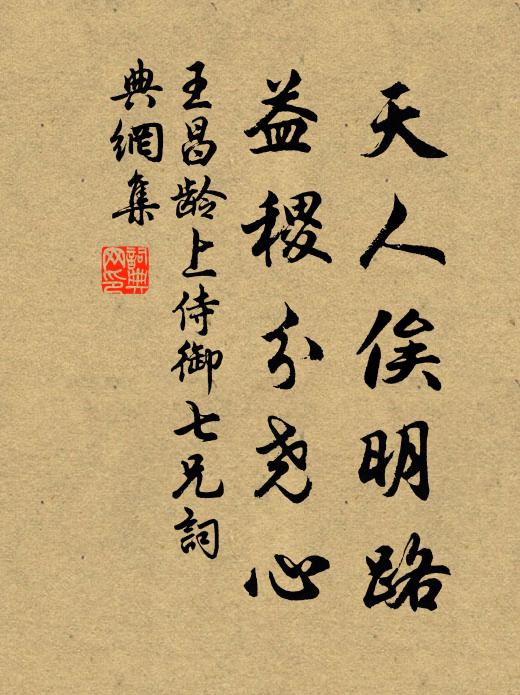 天人俟明路
益稷分尧心
王昌龄上侍御七兄詞
典網集
詞典網印